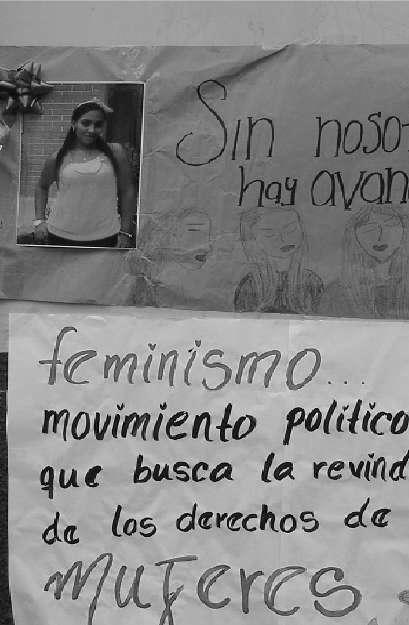 Sin noso
hay avan
feminismo...
movimiento político
que busca la revind
de los derechos de
mujeres.